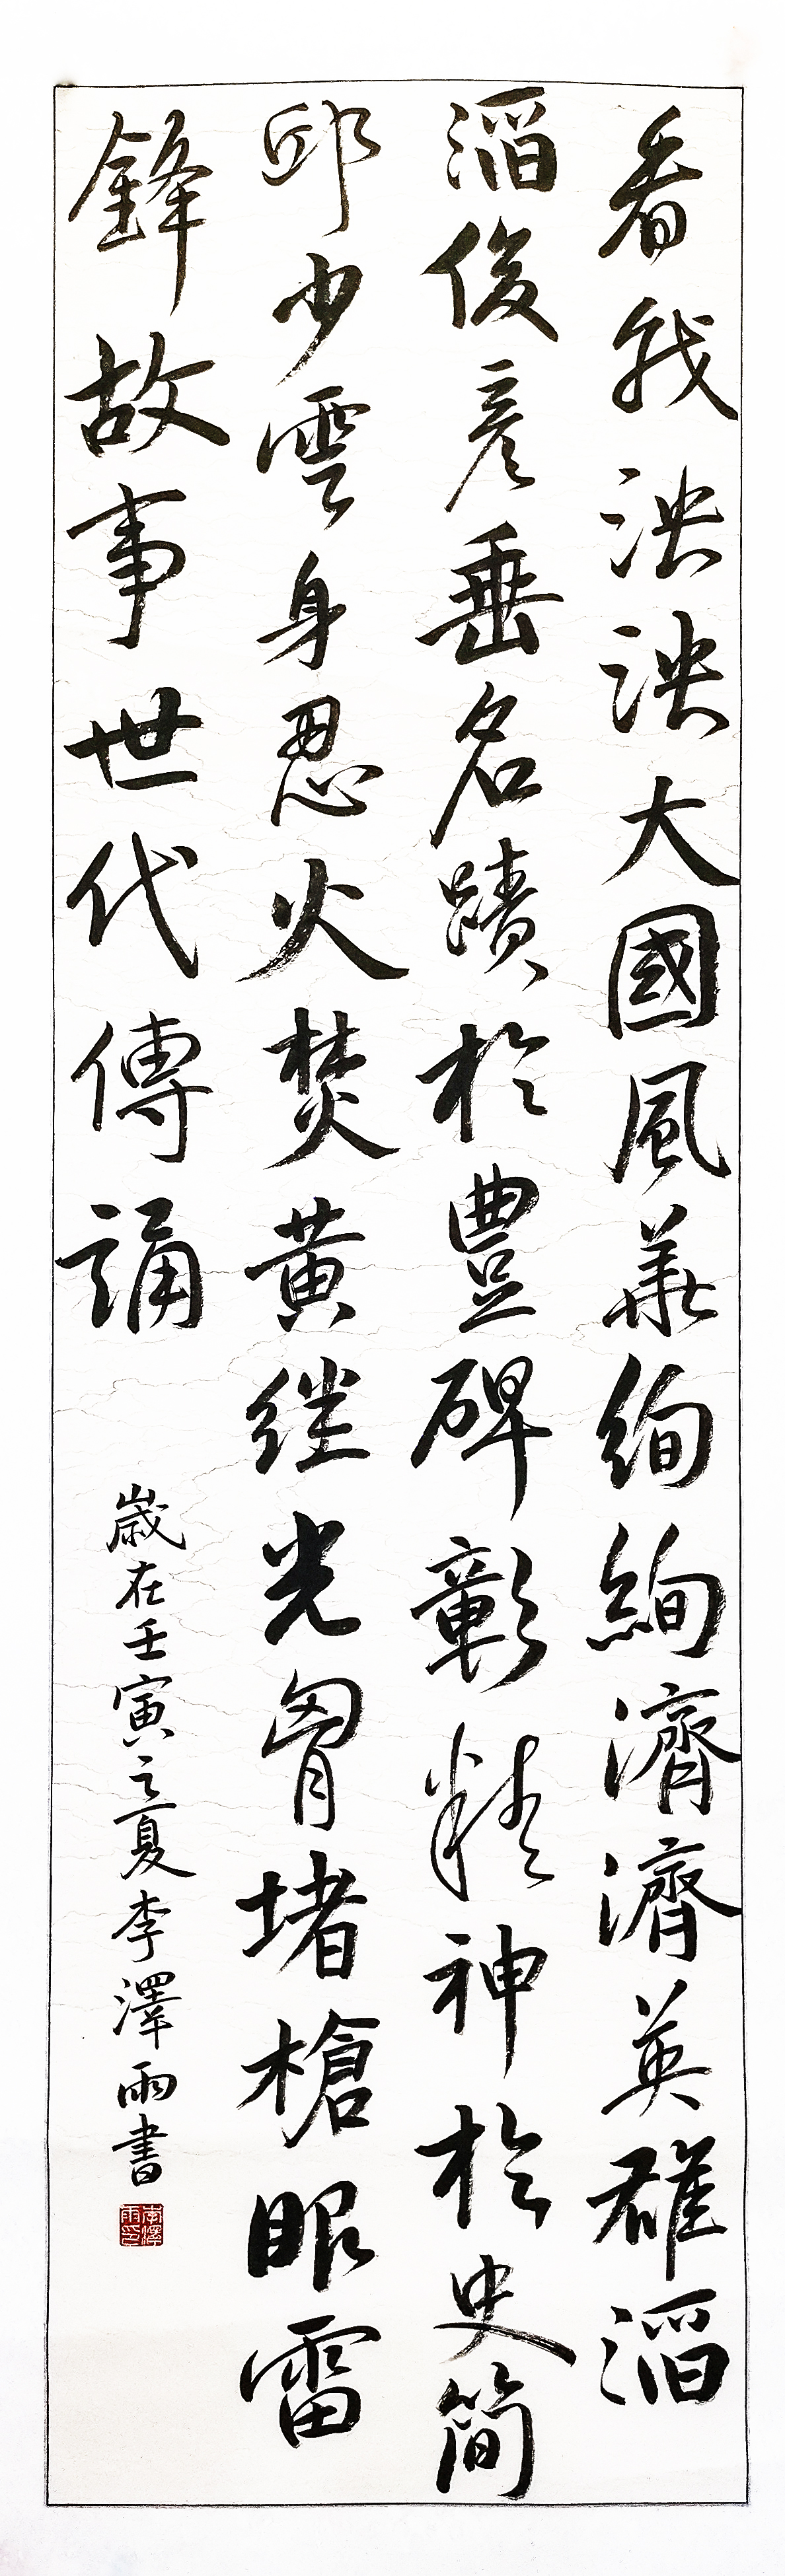 看我泱泱大國風華絢絢濟濟英雄滔
滔俊彦垂名蹟於豐碑彰精神於史簡
邱少雲身忍火焚黄继光胷堵槍眼雷
鋒故事世代傳誦
歲在壬寅之夏李澤雨書
李澤雨印